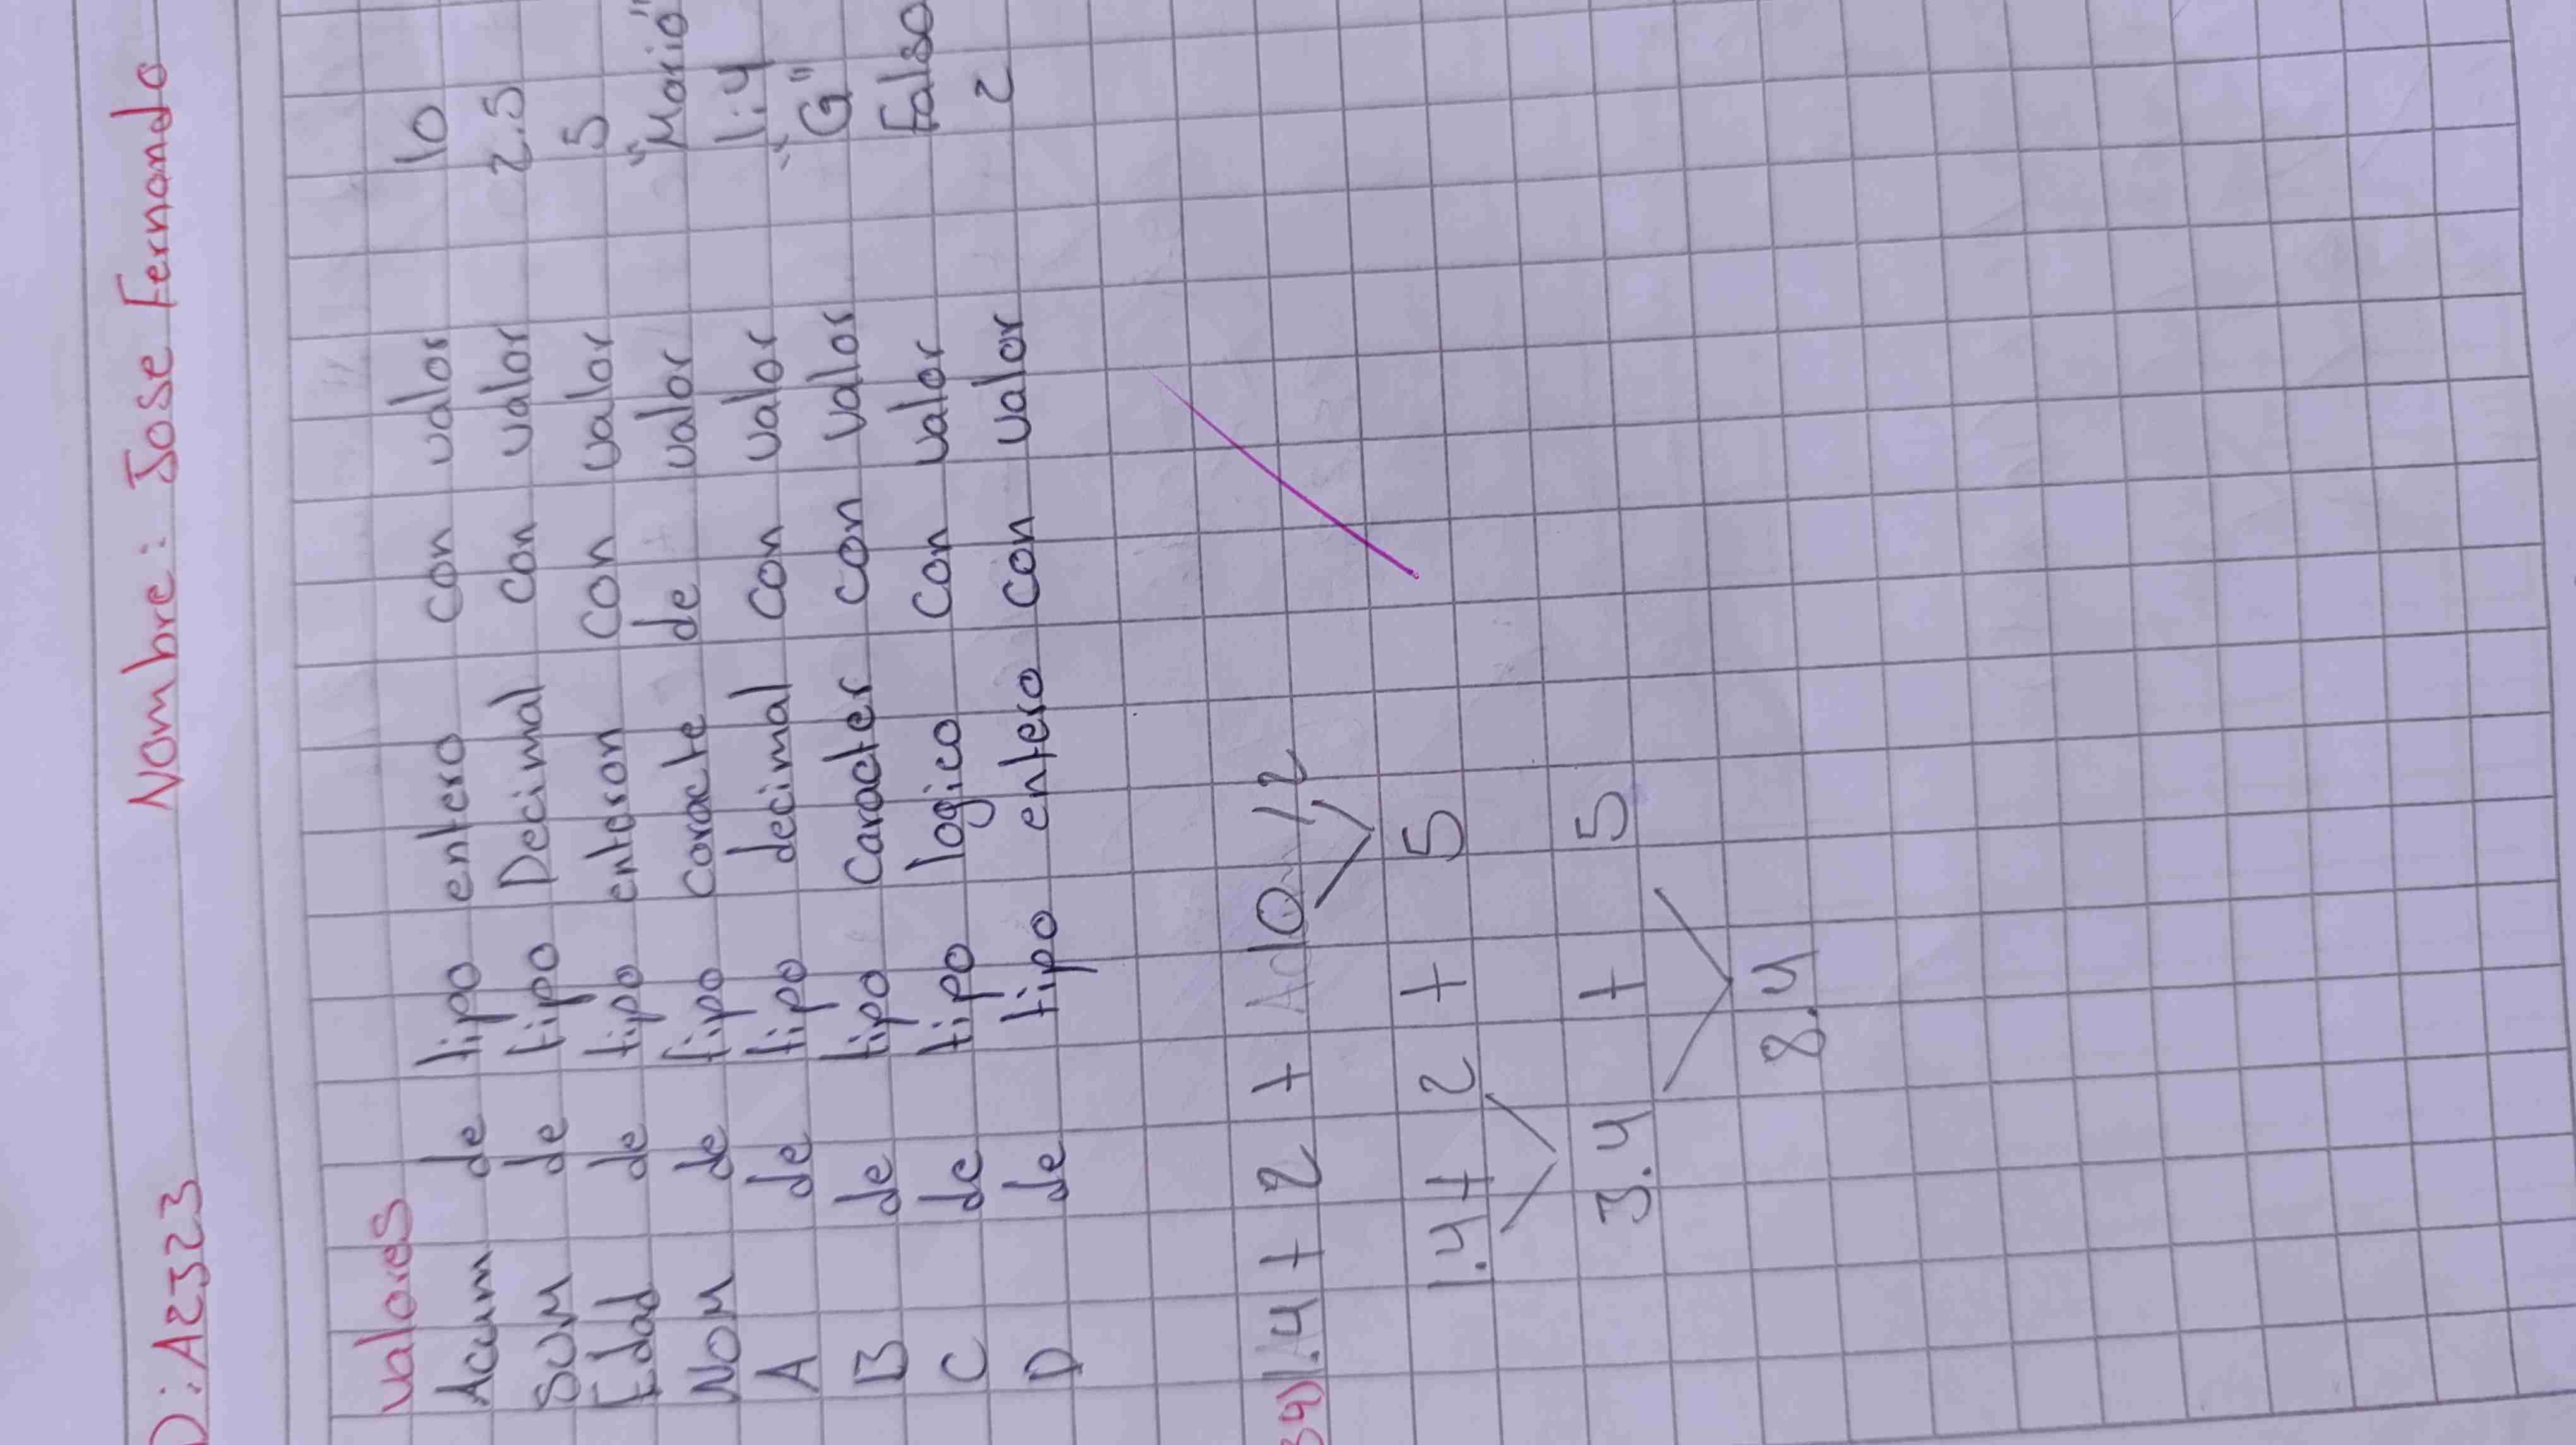 D: A2323 Nombre: Jose Fernando
valores
Acum de tipo entero con valor 10
SUM de tipo Decimal con valor 2.5
Edad de tipo enteron con valor 5
NOM de tipo coracte de valor "Mario"
A de tipo decimal con valor 1.4
B de tipo caracter con valor "G"
C de tipo logico con valor Falso
D de tipo entero con valor 2
39) 1.4 + 2 + 10 / 2
1.4 + 2 + 5
3.4 + 5
8.4